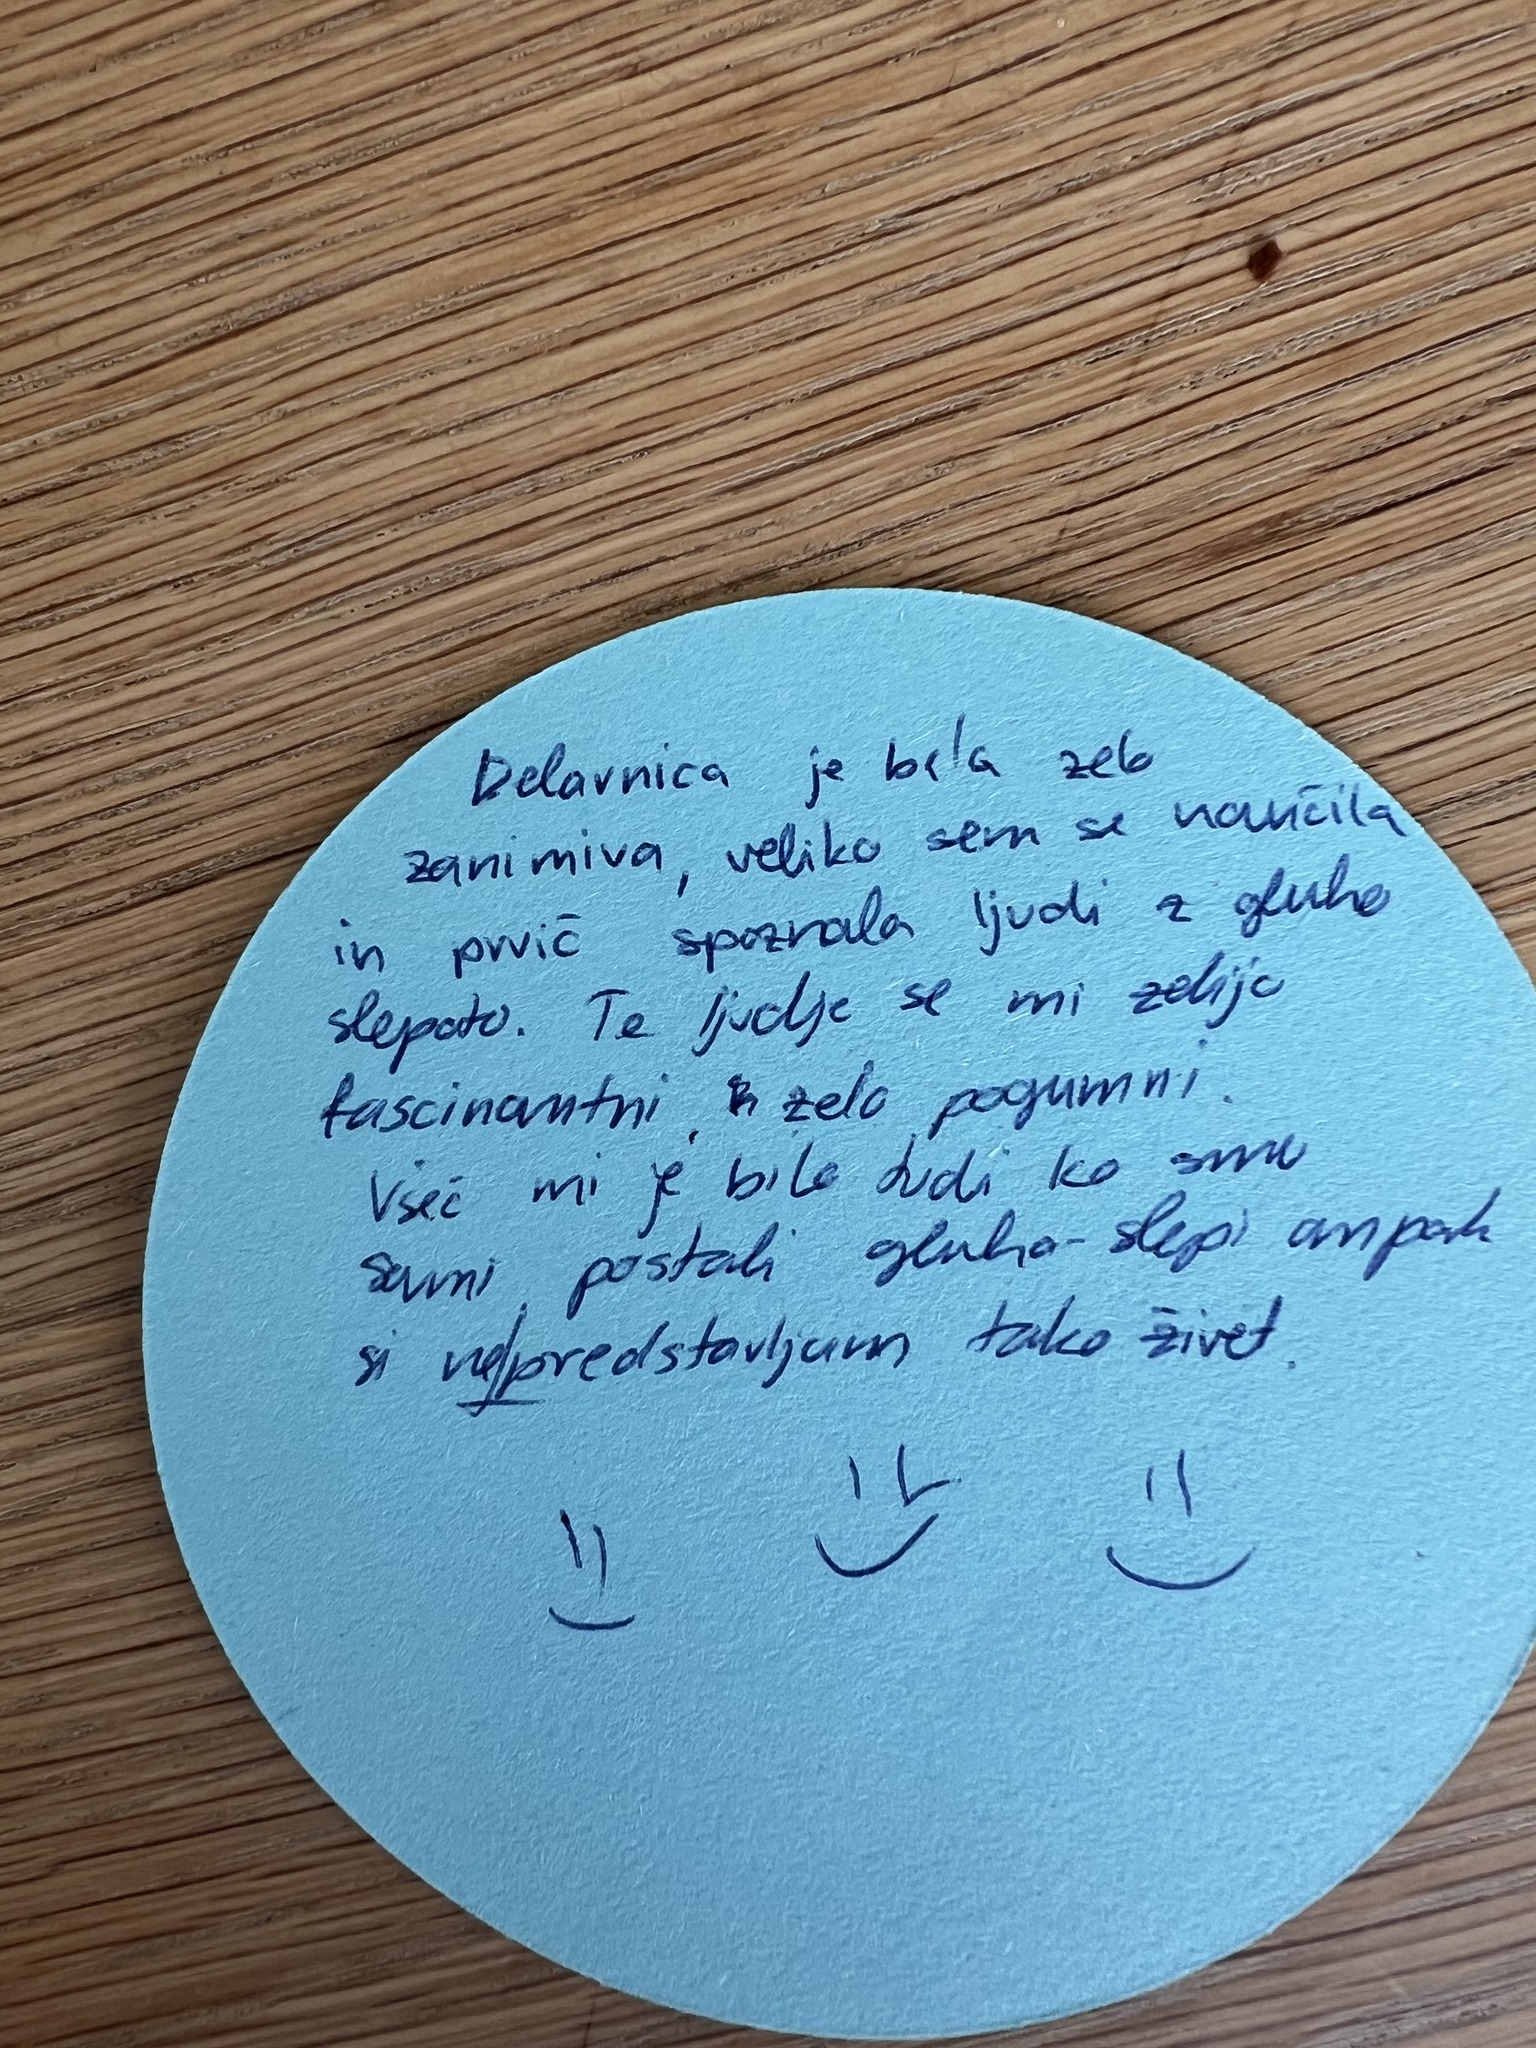 Delavnica je bila zelo
zanimiva, veliko sem se naučila
in prvič spoznala ljudi z gluho
slepoto. Te ljudje se mi zdijo
fascinantni, zelo pogumni.
Všeč mi je bilo tudi ko smo
sami postali gluho-slepi ampak
si ne predstavljam tako živet.